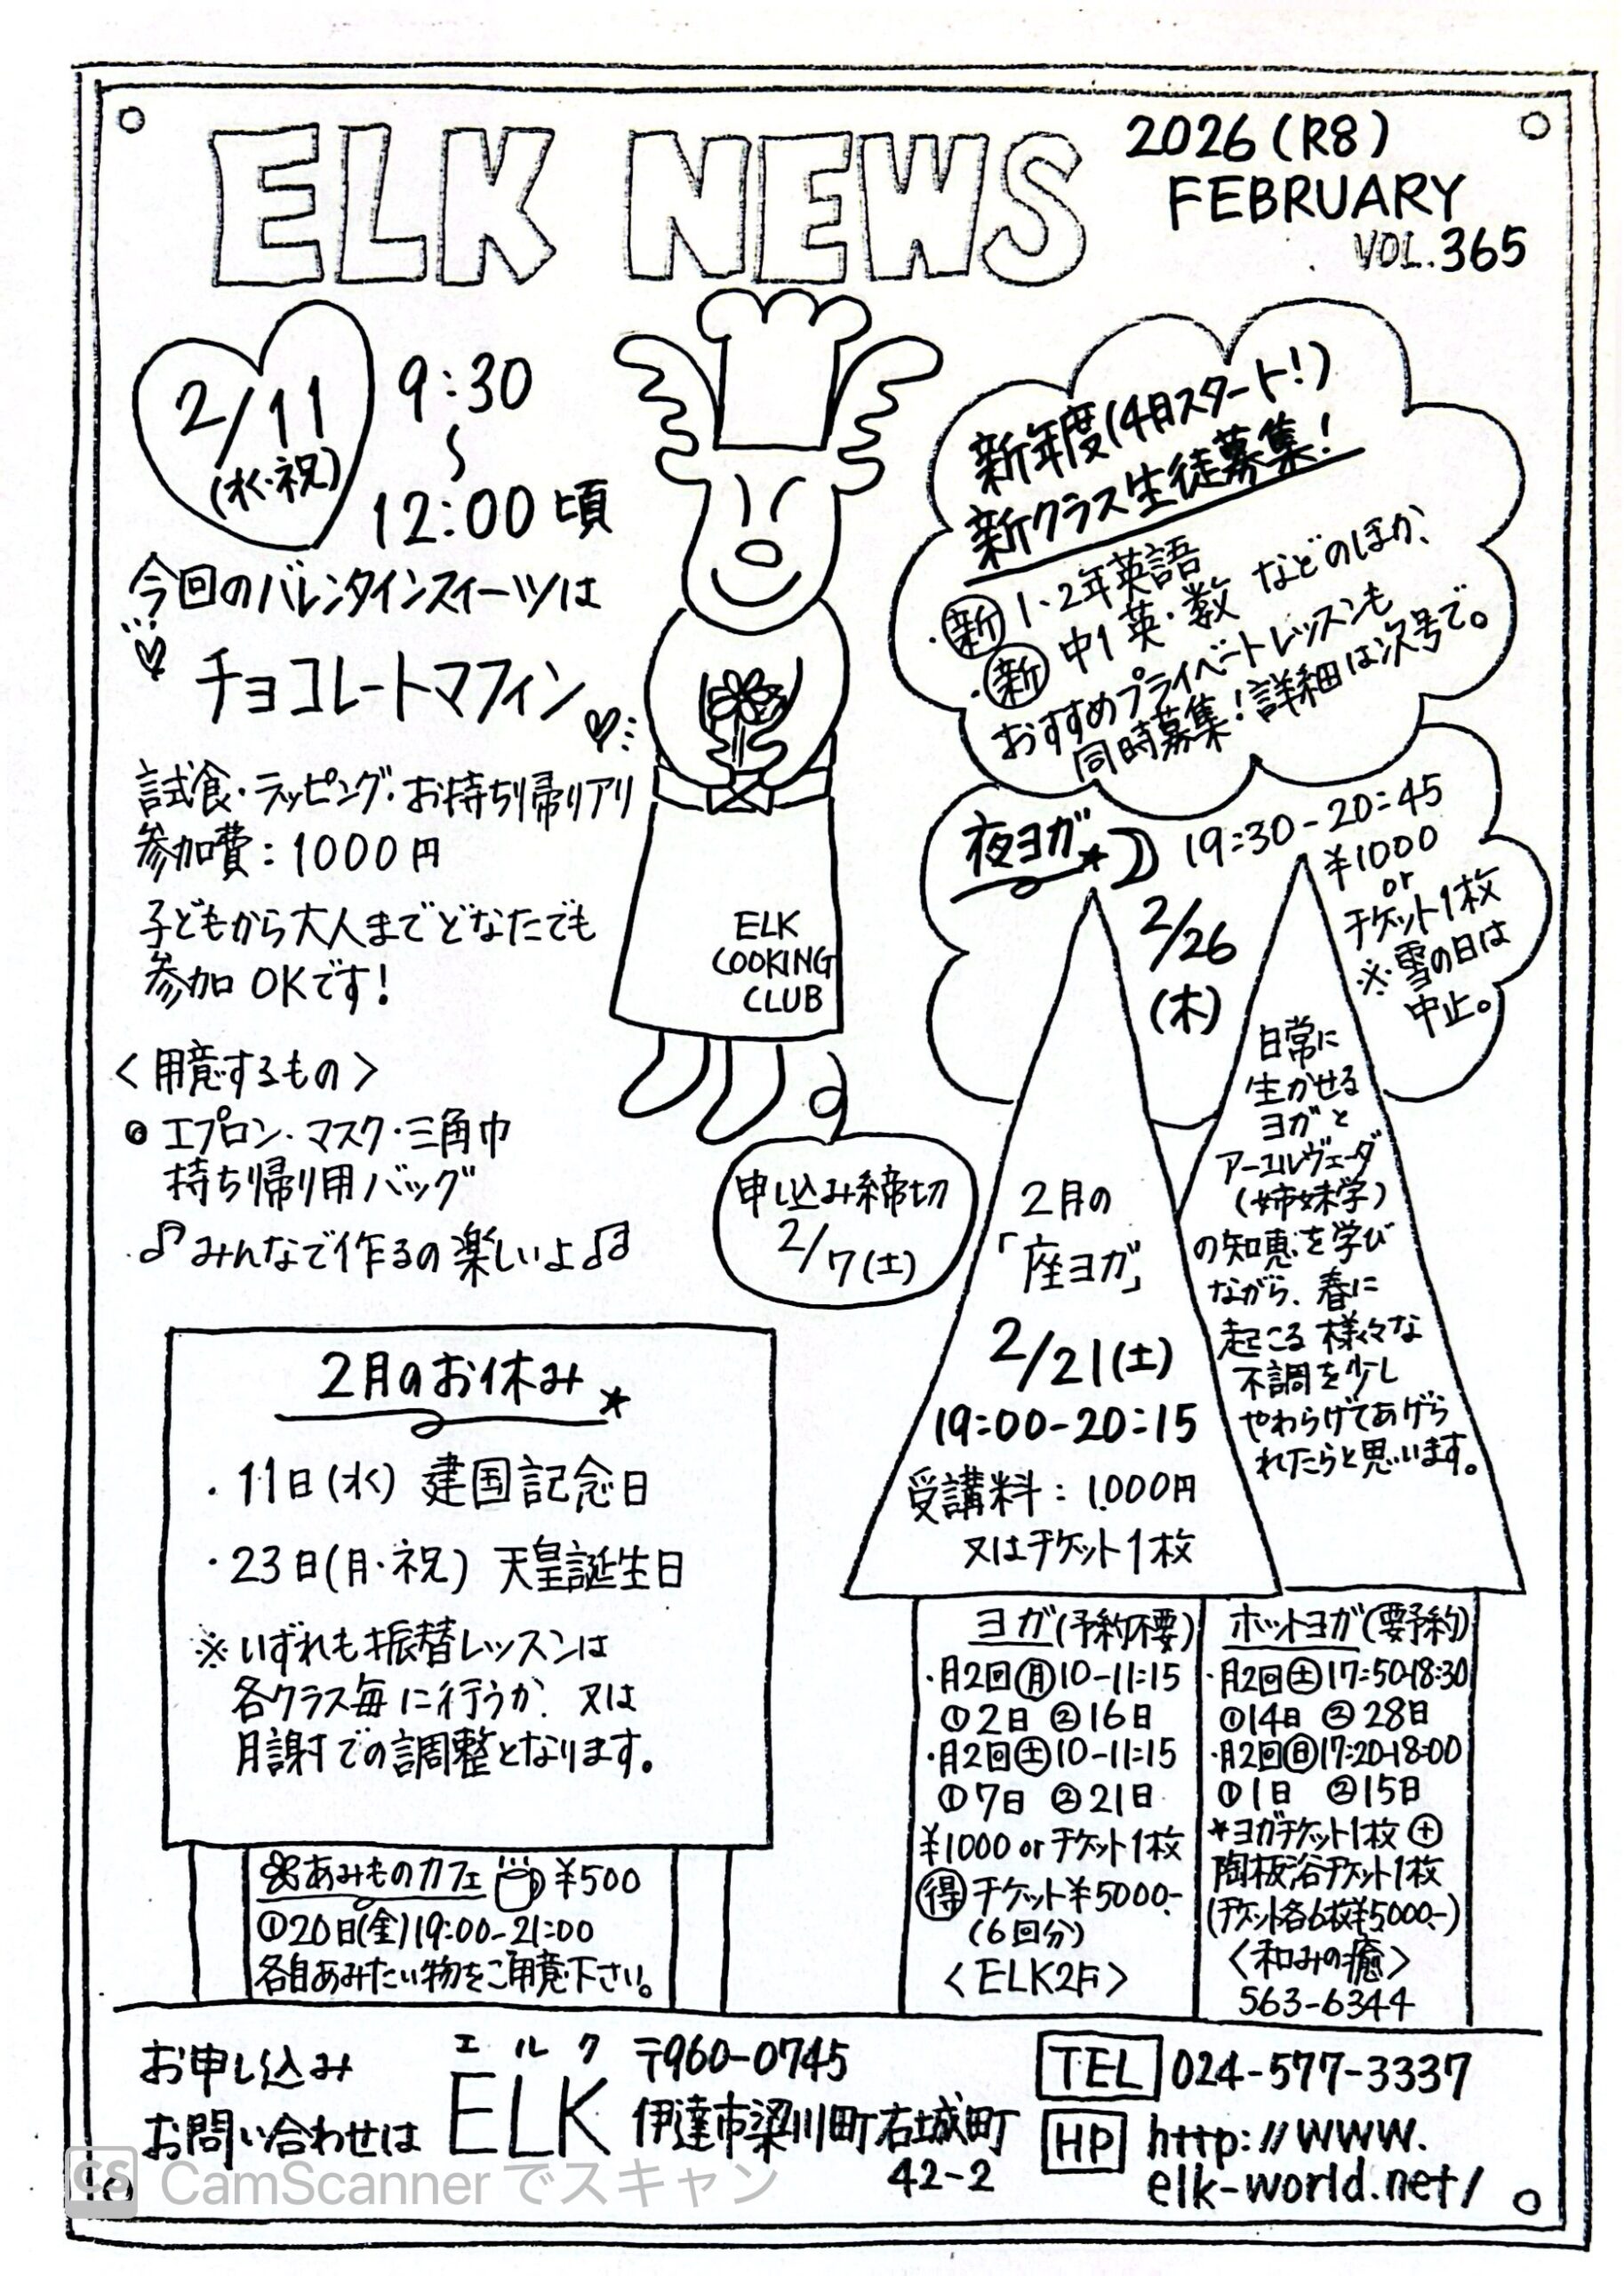 ELK NEWS
2026(R8)
FEBRUARY
VOL.365
2/11
(水・祝)
9:30
〜
12:00頃
今回のバレンタインスイーツは
チョコレートマフィン
試食・ラッピング・お持ち帰りアリ
参加費:1000円
子どもから大人までどなたでも
参加OKです!
<用意するもの>
エプロン・マスク・三角巾
持ち帰り用バッグ
♪みんなで作るの楽しいよ♫
ELK
COOKING
CLUB
申し込み締切
2/7(土)
新年度(4月スタート!)
新クラス生徒募集!
・新1・2年英語
・新中1英・数 などのほか、
おすすめプライベートレッスンも
同時募集!詳細は次号で。
夜ヨガ★
19:30-20:45
2/26
(木)
¥1000
or
チケット1枚
※雪の日は
中止。
2月の
「座ヨガ」
2/21(土)
19:00-20:15
受講料:1000円
又はチケット1枚
日常に
生かせる
ヨガと
アーユルヴェーダ
(姉妹学)
の知恵を学び
ながら、春に
起こる様々な
不調を少し
やわらげてあげら
れたらと思います。
2月のお休み★
・11日(水) 建国記念日
・23日(月・祝) 天皇誕生日
※いずれも振替レッスンは
各クラス毎に行うか、又は
月謝での調整となります。
あみものカフェ ¥500
①20日(金)19:00-21:00
各自あみたい物をご用意下さい。
ヨガ(予約不要)
・月2回㊊10-11:15
①2日 ②16日
・月2回㊏10-11:15
①7日 ②21日
¥1000 or チケット1枚
得チケット¥5000-
(6回分)
<ELK2F>
ホットヨガ(要予約)
・月2回㊏17:50-18:30
①14日 ②28日
・月2回㊐17:20-18:00
①1日 ②15日
★ヨガチケット1枚⊕
陶板浴チケット1枚
(チケット各6枚¥5,000-)
<和みの癒>
563-6344
お申し込み
お問い合わせは
エルク
ELK
〒960-0745
伊達市梁川町右城町
42-2
TEL 024-577-3337
HP http://www.
elk-world.net/
CS CamScannerでスキャン